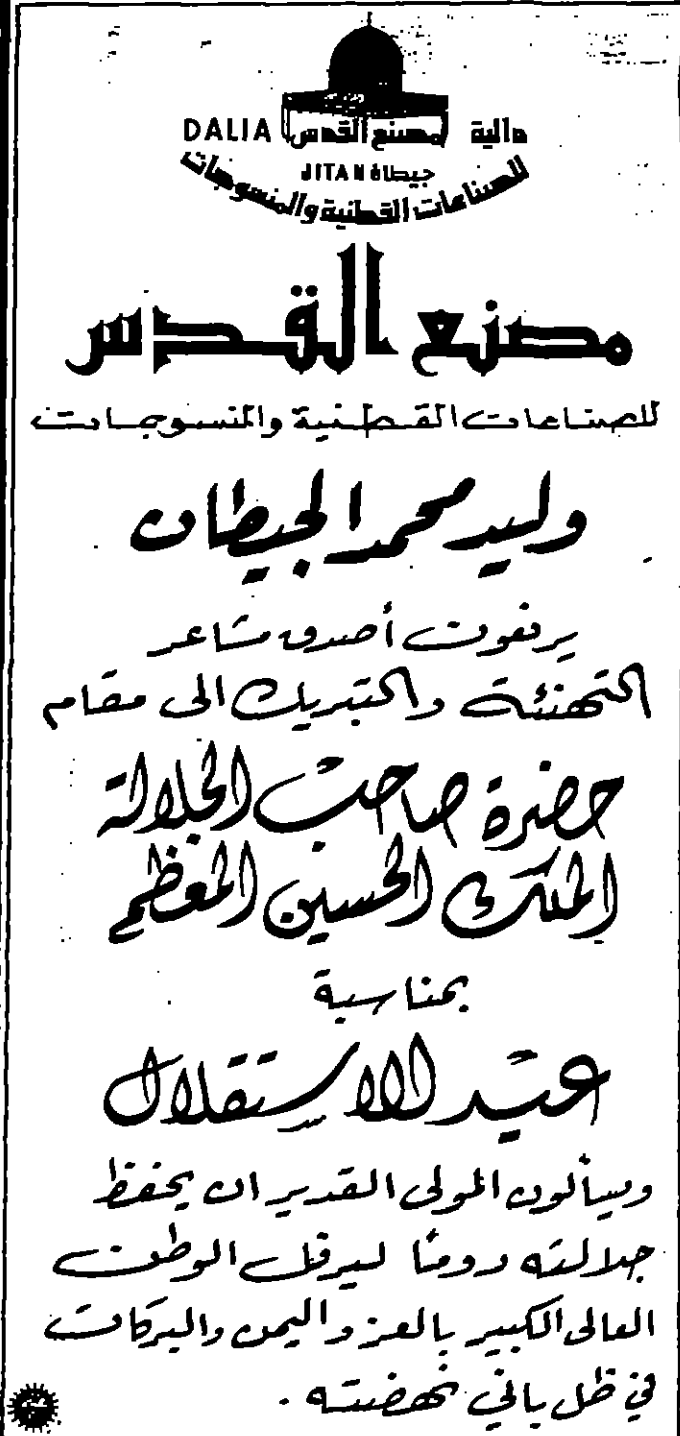 دالية مصنع القدس DALIA
جيطان JITAN
للصناعات القطنية والمنسوجات
مصنع القدس
للصناعات القطنية والمنسوجات
وليد محمد الجيطان
يرفعون أصدق مشاعر
التهنئة والتبريك الى مقام
حضرة صاحب الجلالة
الملك الحسين المعظم
بمناسبة
عيد الاستقلال
ويسألون المولى القدير ان يحفظ
جلالته دومًا ليرفل الوطن
الغالي الكبير بالعز واليمن والبركات
في ظل باني نهضته .